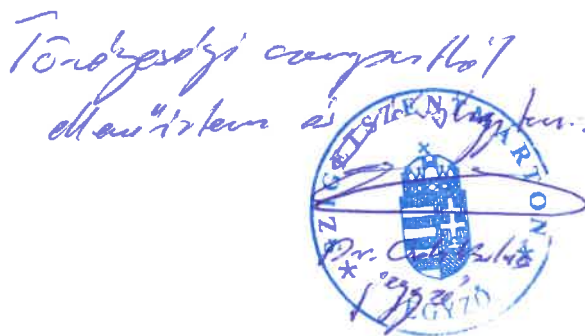 Törvényességi szempontból
ellenőriztem és
SZIGETSZENTMÁRTON
Dr.
jegyző
JEGYZŐ